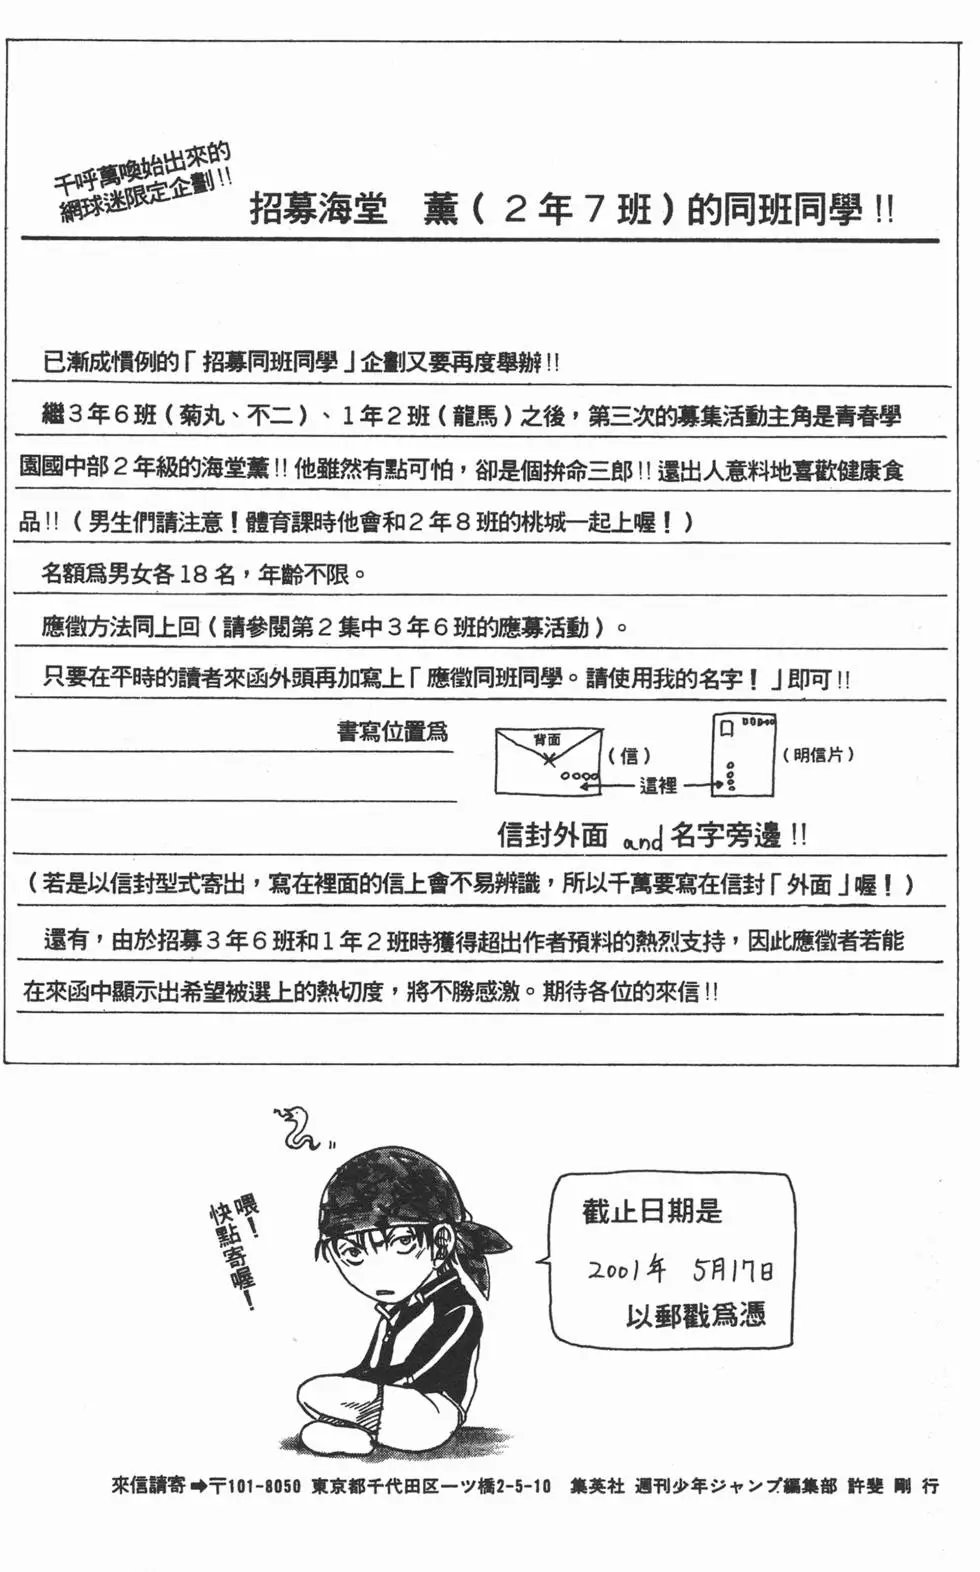 千呼萬喚始出來的
網球迷限定企劃!!
招募海堂　薫(2年7班)的同班同學!!
已漸成慣例的「招募同班同學」企劃又要再度舉辦!!
繼3年6班(菊丸、不二)、1年2班(龍馬)之後，第三次的募集活動主角是青春學
園國中部2年級的海堂薫!!他雖然有點可怕，卻是個拚命三郎!!還出人意料地喜歡健康食
品!!(男生們請注意！體育課時他會和2年8班的桃城一起上喔！)
名額爲男女各18名，年齡不限。
應徵方法同上回(請參閱第2集中3年6班的應募活動)。
只要在平時的讀者來函外頭再加寫上「應徵同班同學。請使用我的名字！」即可!!
書寫位置爲
背面
(信)
(明信片)
這裡
信封外面 and 名字旁邊!!
(若是以信封型式寄出，寫在裡面的信上會不易辨識，所以千萬要寫在信封「外面」喔！)
還有，由於招募3年6班和1年2班時獲得超出作者預料的熱烈支持，因此應徵者若能
在來函中顯示出希望被選上的熱切度，將不勝感激。期待各位的來信!!
喂！
快點寄喔！
截止日期是
2001年 5月17日
以郵戳爲憑
來信請寄➡〒101-8050 東京都千代田区一ツ橋2-5-10　集英社 週刊少年ジャンプ編集部 許斐 剛 行